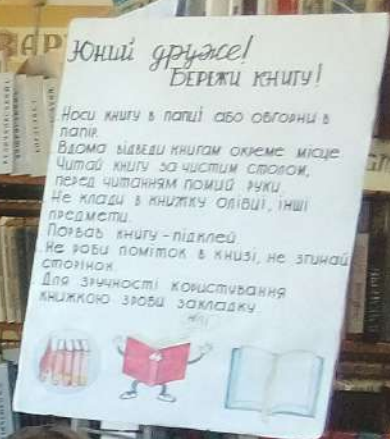 Юний друже!
Бережи книгу!
Носи книгу в папці або обгорни в
папір.
Вдома відведи книгам окреме місце
Читай книгу за чистим столом,
перед читанням помий руки.
Не клади в книжку олівці, інші
предмети.
Порвав книгу - підклей
Не роби поміток в книзі, не згинай
сторінок
Для зручності користування
книжкою зроби закладку.